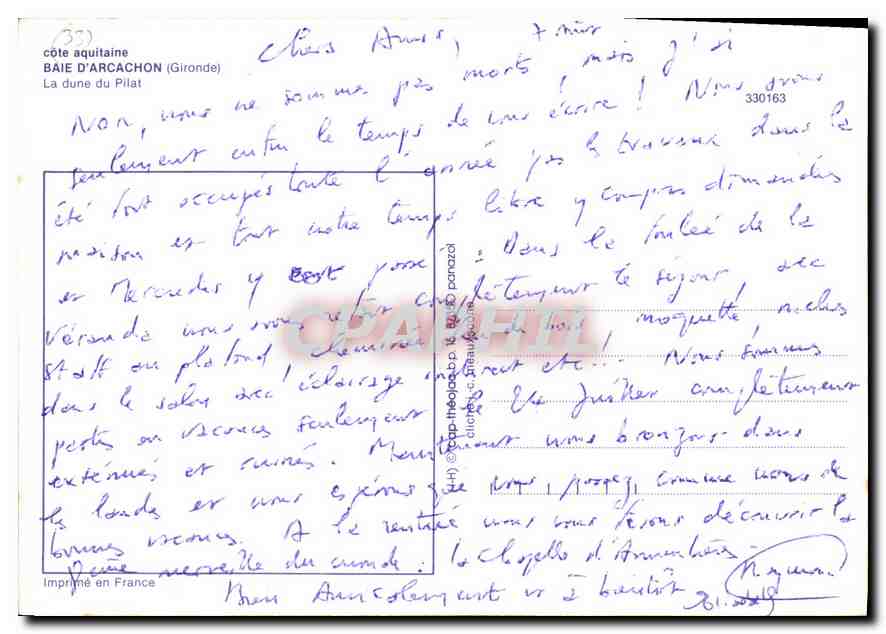 (33)
côte aquitaine
BAIE D'ARCACHON (Gironde)
La dune du Pilat
330163
Chers Amis,
Non, nous ne sommes pas morts, mais j'ai
seulement enfin le temps de vous écrire ! Nous avons
été fort occupés toute l'année par les travaux dans la
maison et tout notre temps libre y compris dimanches
et Mercredis y est passé. Dans la foulée de la
Véranda nous avons refait complètement le séjour, avec
staff au plafond, cheminée, moquette, niches
dans le salon avec éclairage indirect etc... Nous sommes
partis en vacances seulement le 24 Juillet complètement
exténués et ruinés. Maintenant nous bronzons dans
les landes et nous espérons que vous passez, comme nous de
bonnes vacances. A la rentrée nous vous ferons découvrir la
merveille du monde : la Chapelle d'Armentières
Bien Amicalement et à bientôt
Imprimé en France
CPAPHIL